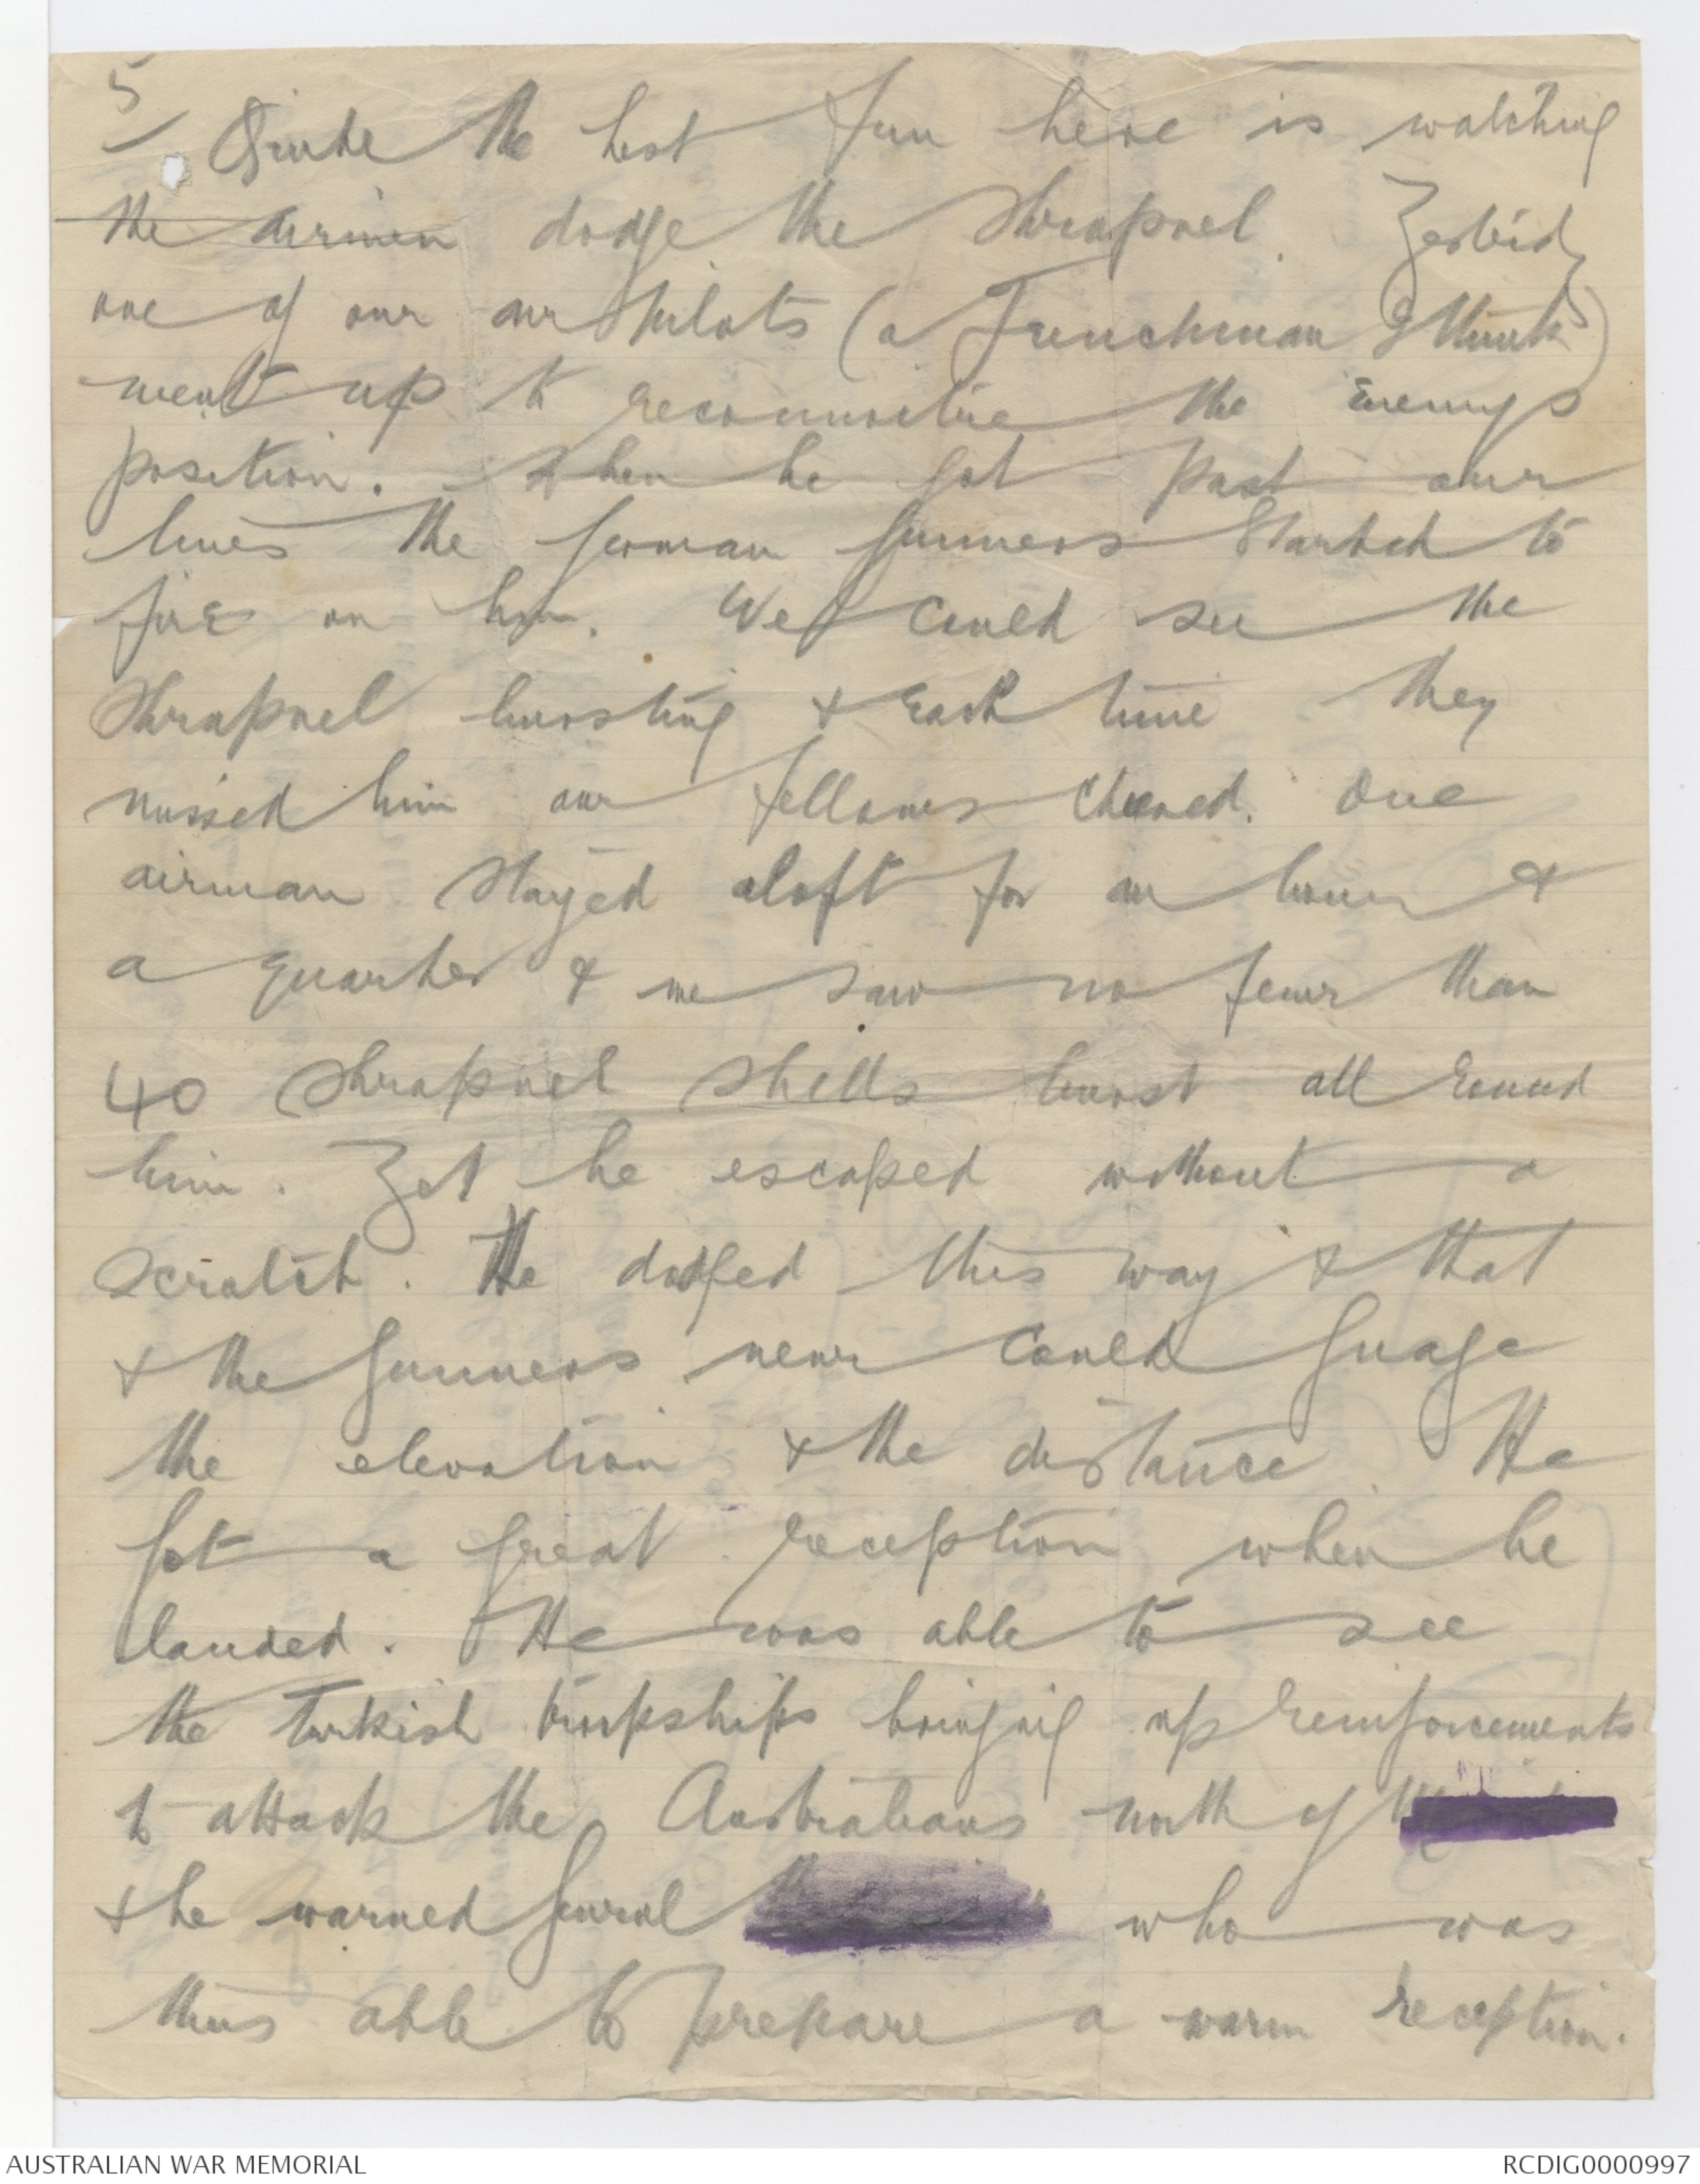 5/
Quite the best fun here is watching
the airmen dodge the shrapnel.
one of our air pilots (a Frenchman I think)
went up to reconnoitre the Enemys
position. When he got past our
lines the German gunners started to
fire on him. We could see the
shrapnel bursting & each time they
missed him our fellows cheered. One
airman stayed aloft for an hour &
a quarter & we saw no fewer than
40 shrapnel shells burst all round
him. Yet he escaped without a
scratch. He dodged this way & that
& the gunners never could guage
the elevation & the distance. He
got a great reception when he
landed. He was able to see
the Turkish troopships bringing up reinforcements
to attack the Australians north of
& he warned General who was
thus able to prepare a warm reception.
AUSTRALIAN WAR MEMORIAL
RCDIG0000997